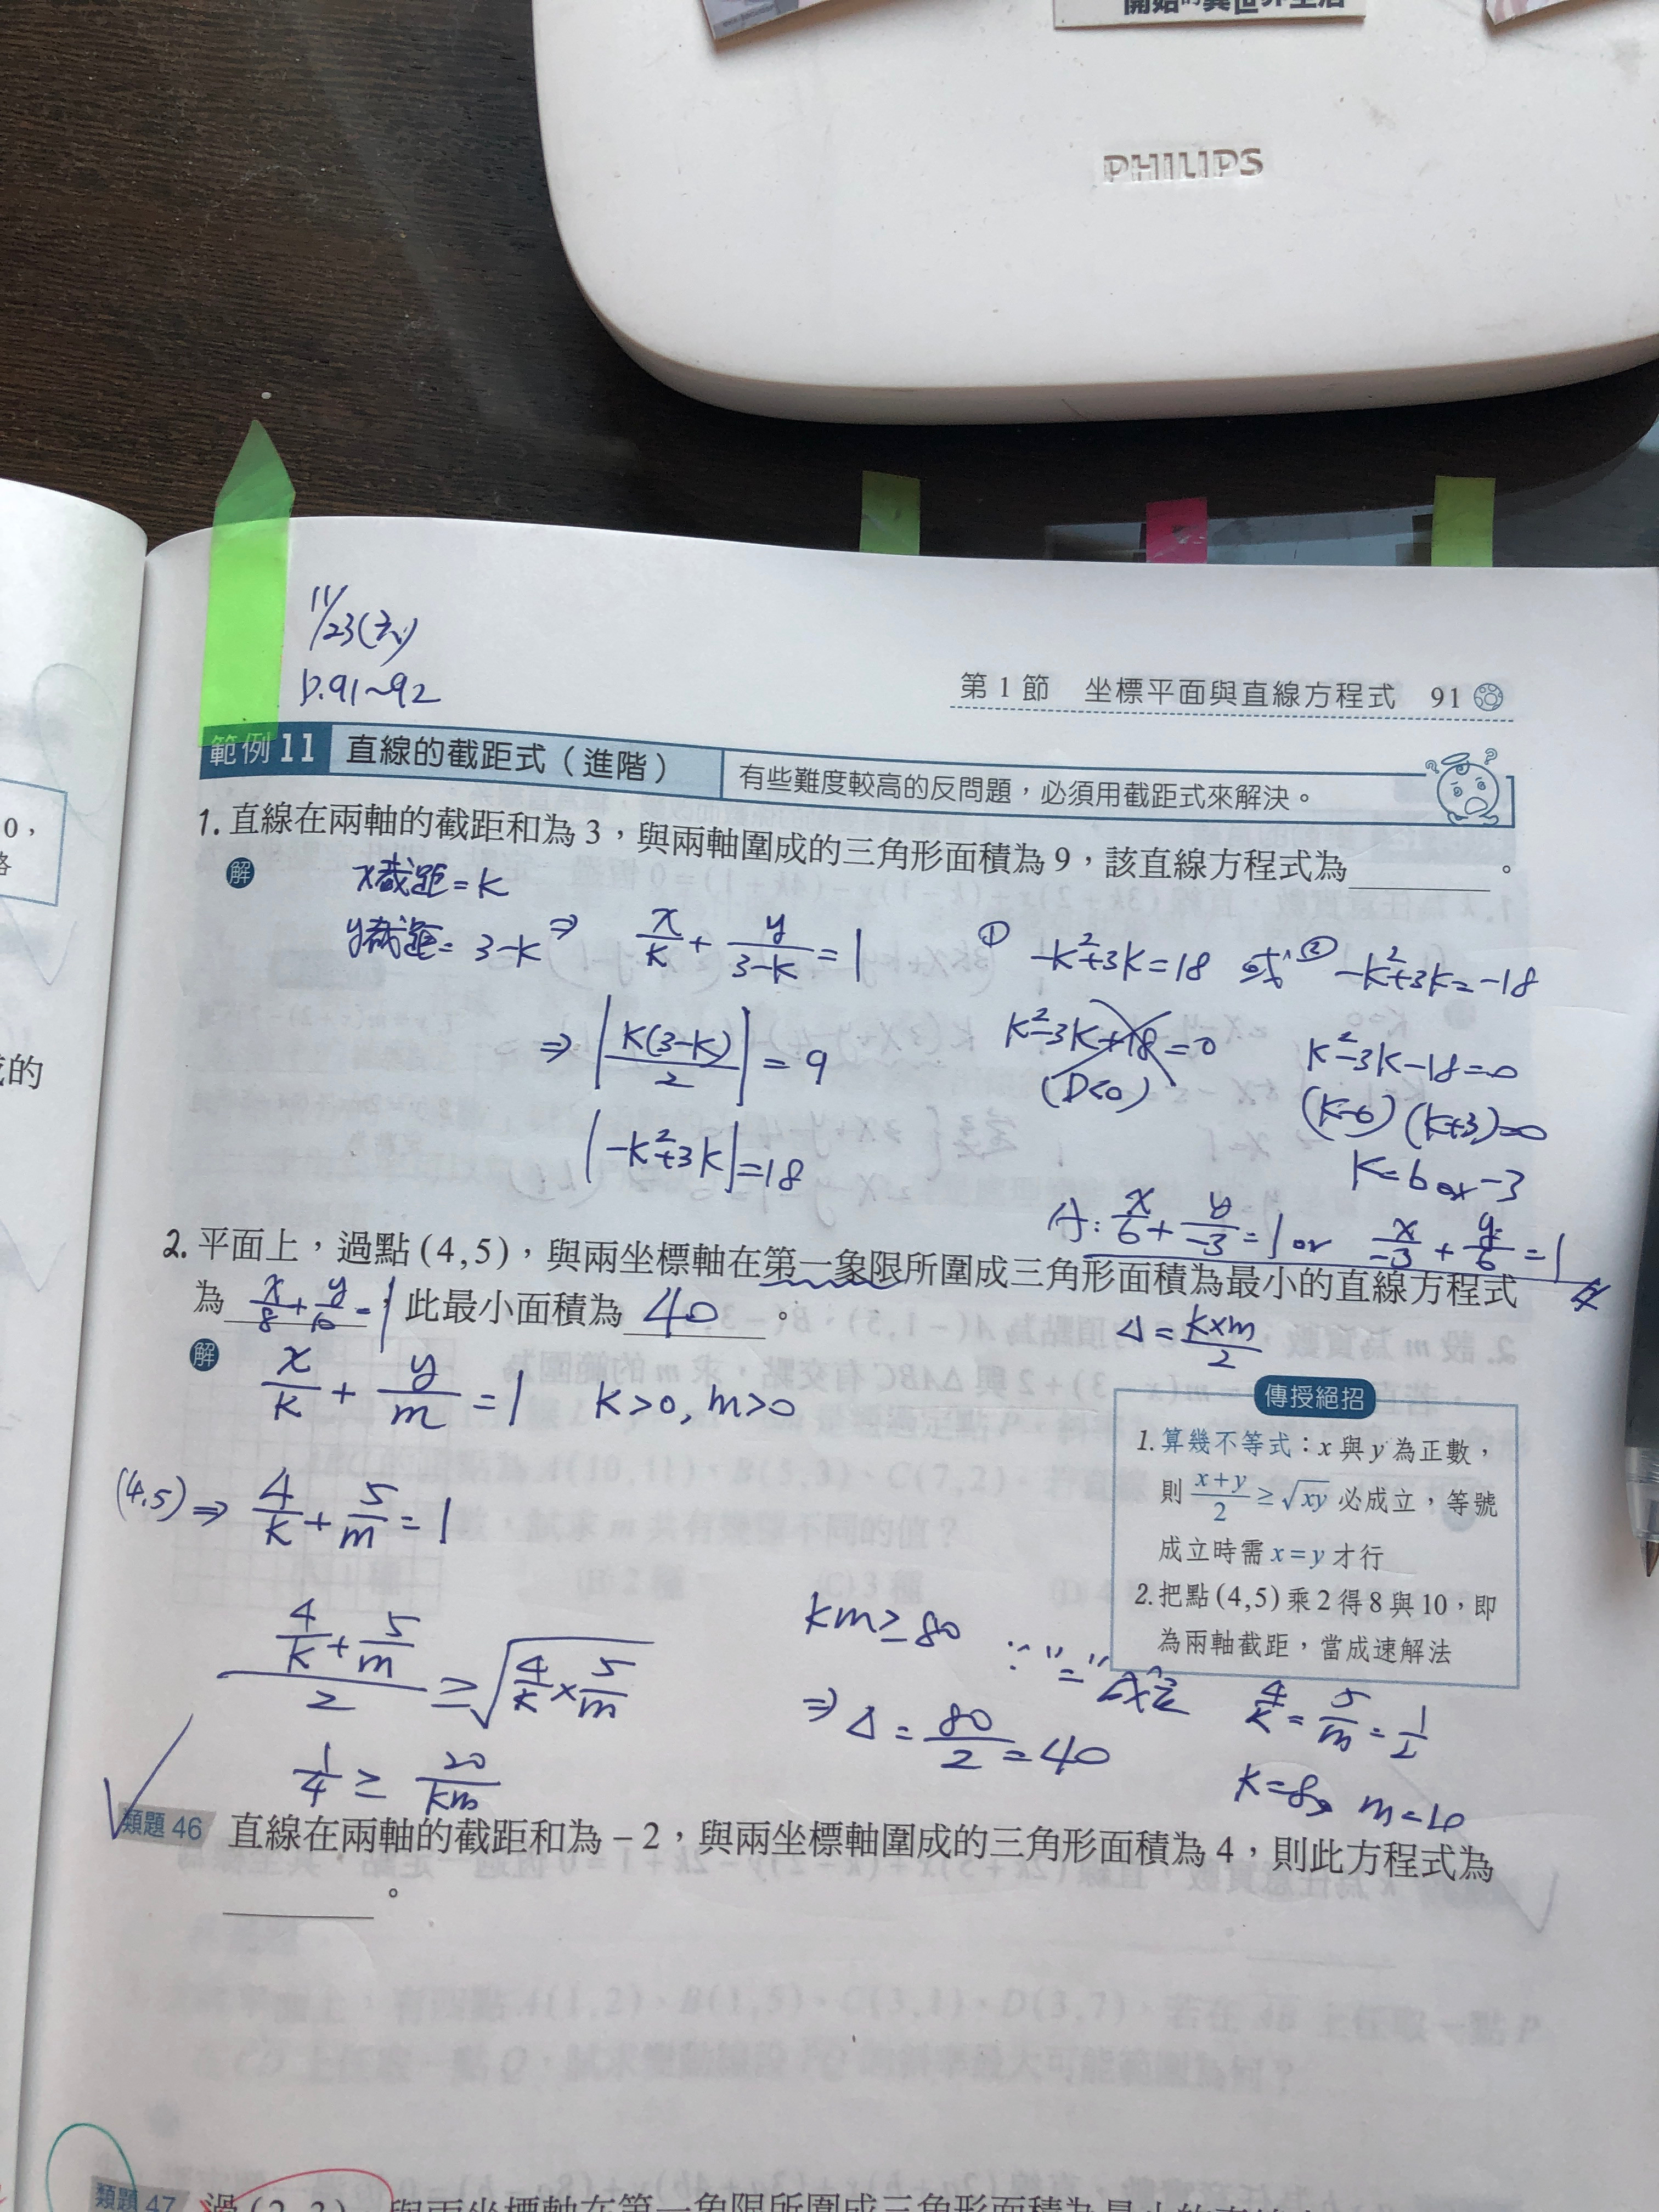 開始的異世界生活
PHILIPS
11/23(六)
P.91~92
第1節 坐標平面與直線方程式 91
範例 11 直線的截距式(進階) 有些難度較高的反問題,必須用截距式來解決。
1. 直線在兩軸的截距和為3,與兩軸圍成的三角形面積為9,該直線方程式為______。
解
x截距=k
y截距=3-k ⇒ x/k + y/(3-k) = 1
⇒ |k(3-k)/2| = 9
|-k²+3k|=18
① -k²+3k=18 或 ② -k²+3k=-18
k²-3k+18=0
(D<0)
k²-3k-18=0
(k-6)(k+3)=0
k=6 or -3
A: x/6 + y/-3 = 1 or x/-3 + y/6 = 1
2. 平面上,過點(4,5),與兩坐標軸在第一象限所圍成三角形面積為最小的直線方程式
為 x/8 + y/10 = 1 , 此最小面積為 40 。
Δ = k×m/2
解
x/k + y/m = 1 k>0, m>0
(4,5) ⇒ 4/k + 5/m = 1
(4/k + 5/m)/2 ≥ √(4/k × 5/m)
1/4 ≥ 20/km
km ≥ 80
⇒ Δ = 80/2 = 40
∵ "="
4/k = 5/m = 1/2
k=8, m=10
傳授絕招
1. 算幾不等式:x與y為正數,
則 (x+y)/2 ≥ √xy 必成立,等號
成立時需x=y才行
2. 把點(4,5)乘2得8與10,即
為兩軸截距,當成速解法
類題 46 直線在兩軸的截距和為-2,與兩坐標軸圍成的三角形面積為4,則此方程式為
______。
類題 47 過(2,3),與兩坐標軸在第一象限所圍成三角形面積為最小的直線